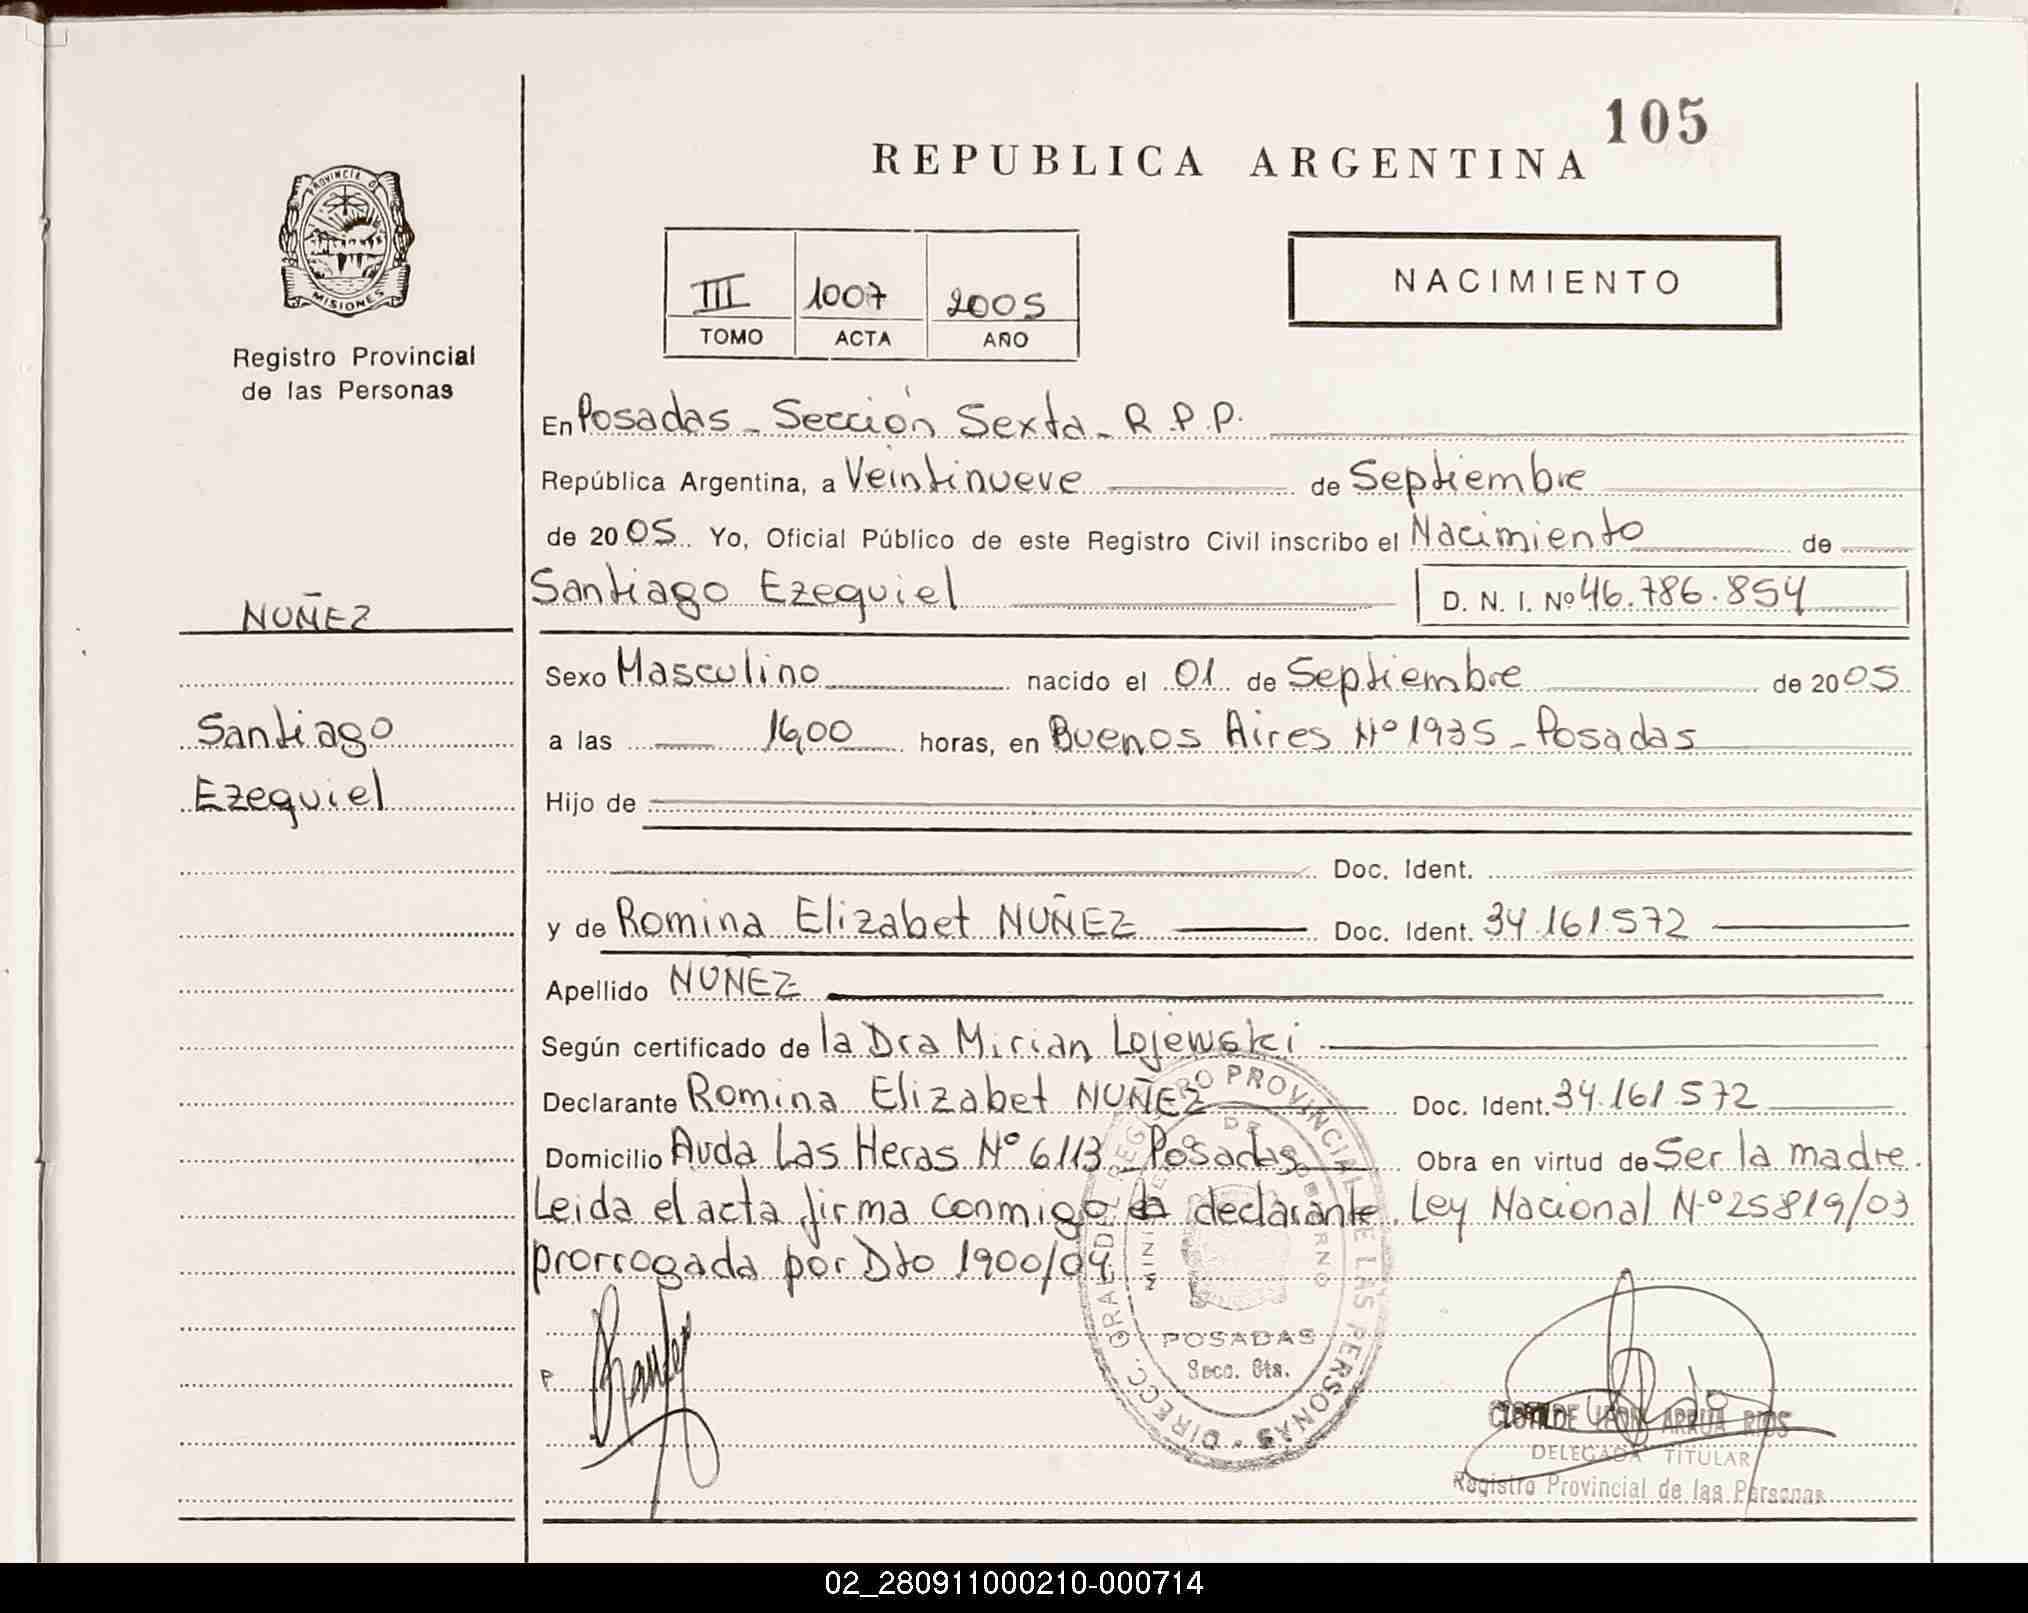 105
REPUBLICA ARGENTINA
PROVINCIA DE
MISIONES
Registro Provincial
de las Personas
III 1007 2005
TOMO ACTA AÑO
NACIMIENTO
En Posadas - Sección Sexta - R.P.P.
República Argentina, a Veintinueve de Septiembre
de 2005. Yo, Oficial Público de este Registro Civil inscribo el Nacimiento de
Santiago Ezequiel D. N. I. Nº 46.786.854
NUÑEZ
Santiago
Ezequiel
Sexo Masculino nacido el 01 de Septiembre de 2005
a las 16,00 horas, en Buenos Aires Nº 1935 - Posadas
Hijo de
Doc. Ident.
y de Romina Elizabet NUÑEZ Doc. Ident. 34.161.572
Apellido NUÑEZ
Según certificado de la Dra Mirian Lojewski
Declarante Romina Elizabet NUÑEZ Doc. Ident. 34.161.572
Domicilio Avda Las Heras Nº 6113 - Posadas Obra en virtud de Ser la madre.
Leida el acta firma conmigo la declarante. Ley Nacional N.º 25819/03
prorrogada por Dto 1900/04.
DIRECC. GRAL. DEL REGISTRO PROVINCIAL DE LAS PERSONAS
MINISTERIO DE GOBIERNO
POSADAS
Secc. 6ta.
P.
ARRUA RIOS
DELEGADA TITULAR
Registro Provincial de las Personas
02_280911000210-000714